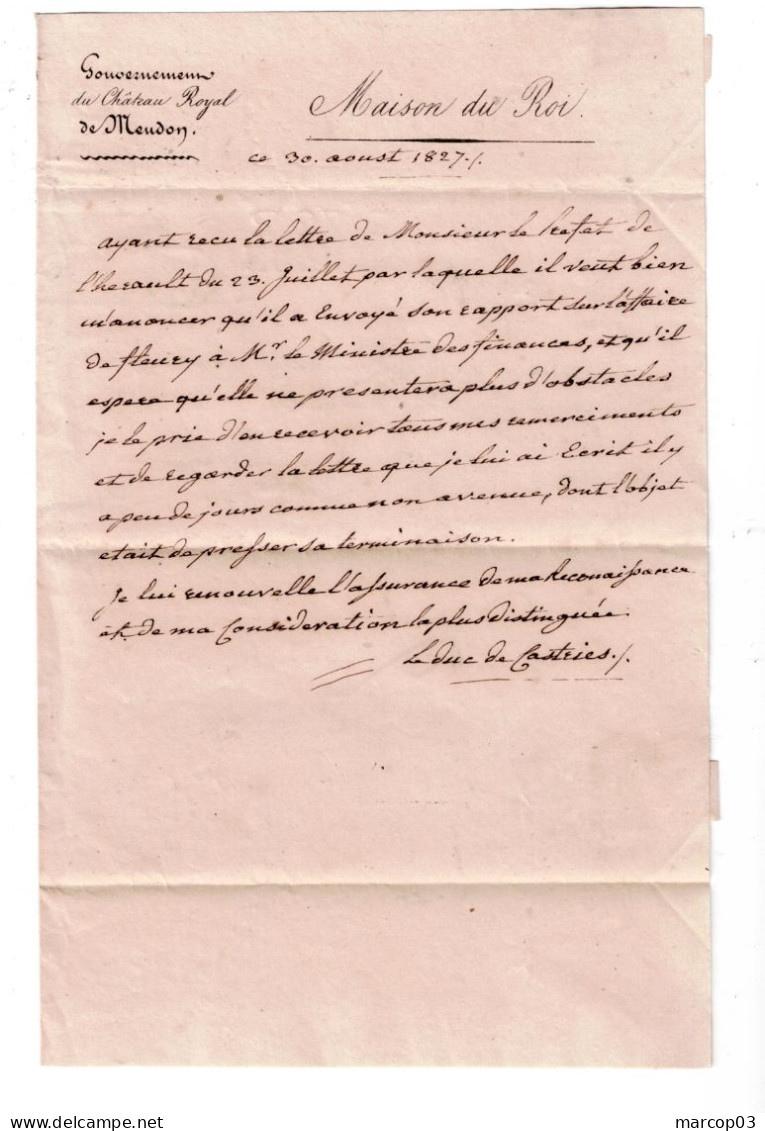 Gouvernement
du Château Royal
de Meudon.
Maison du Roi.
ce 30. aoust 1827./.
ayant recu la lettre de Monsieur le Prefet de
l'herault du 23. Juillet par laquelle il veut bien
m'anoncer qu'il a Envoyé son rapport sur l'affaire
de fleury à Mr. le Ministre des finances, et qu'il
espere qu'elle ne presentera plus d'obstacles
je le prie d'en recevoir tous mes remerciments
et de regarder la lettre que je lui ai Ecrit il y
a peu de jours comme non avenue, dont l'objet
etait de presser sa terminaison.
Je lui renouvelle l'assurance de ma Reconaissance
et de ma Consideration la plus distinguée.
Le duc de Castries./.
marcop03